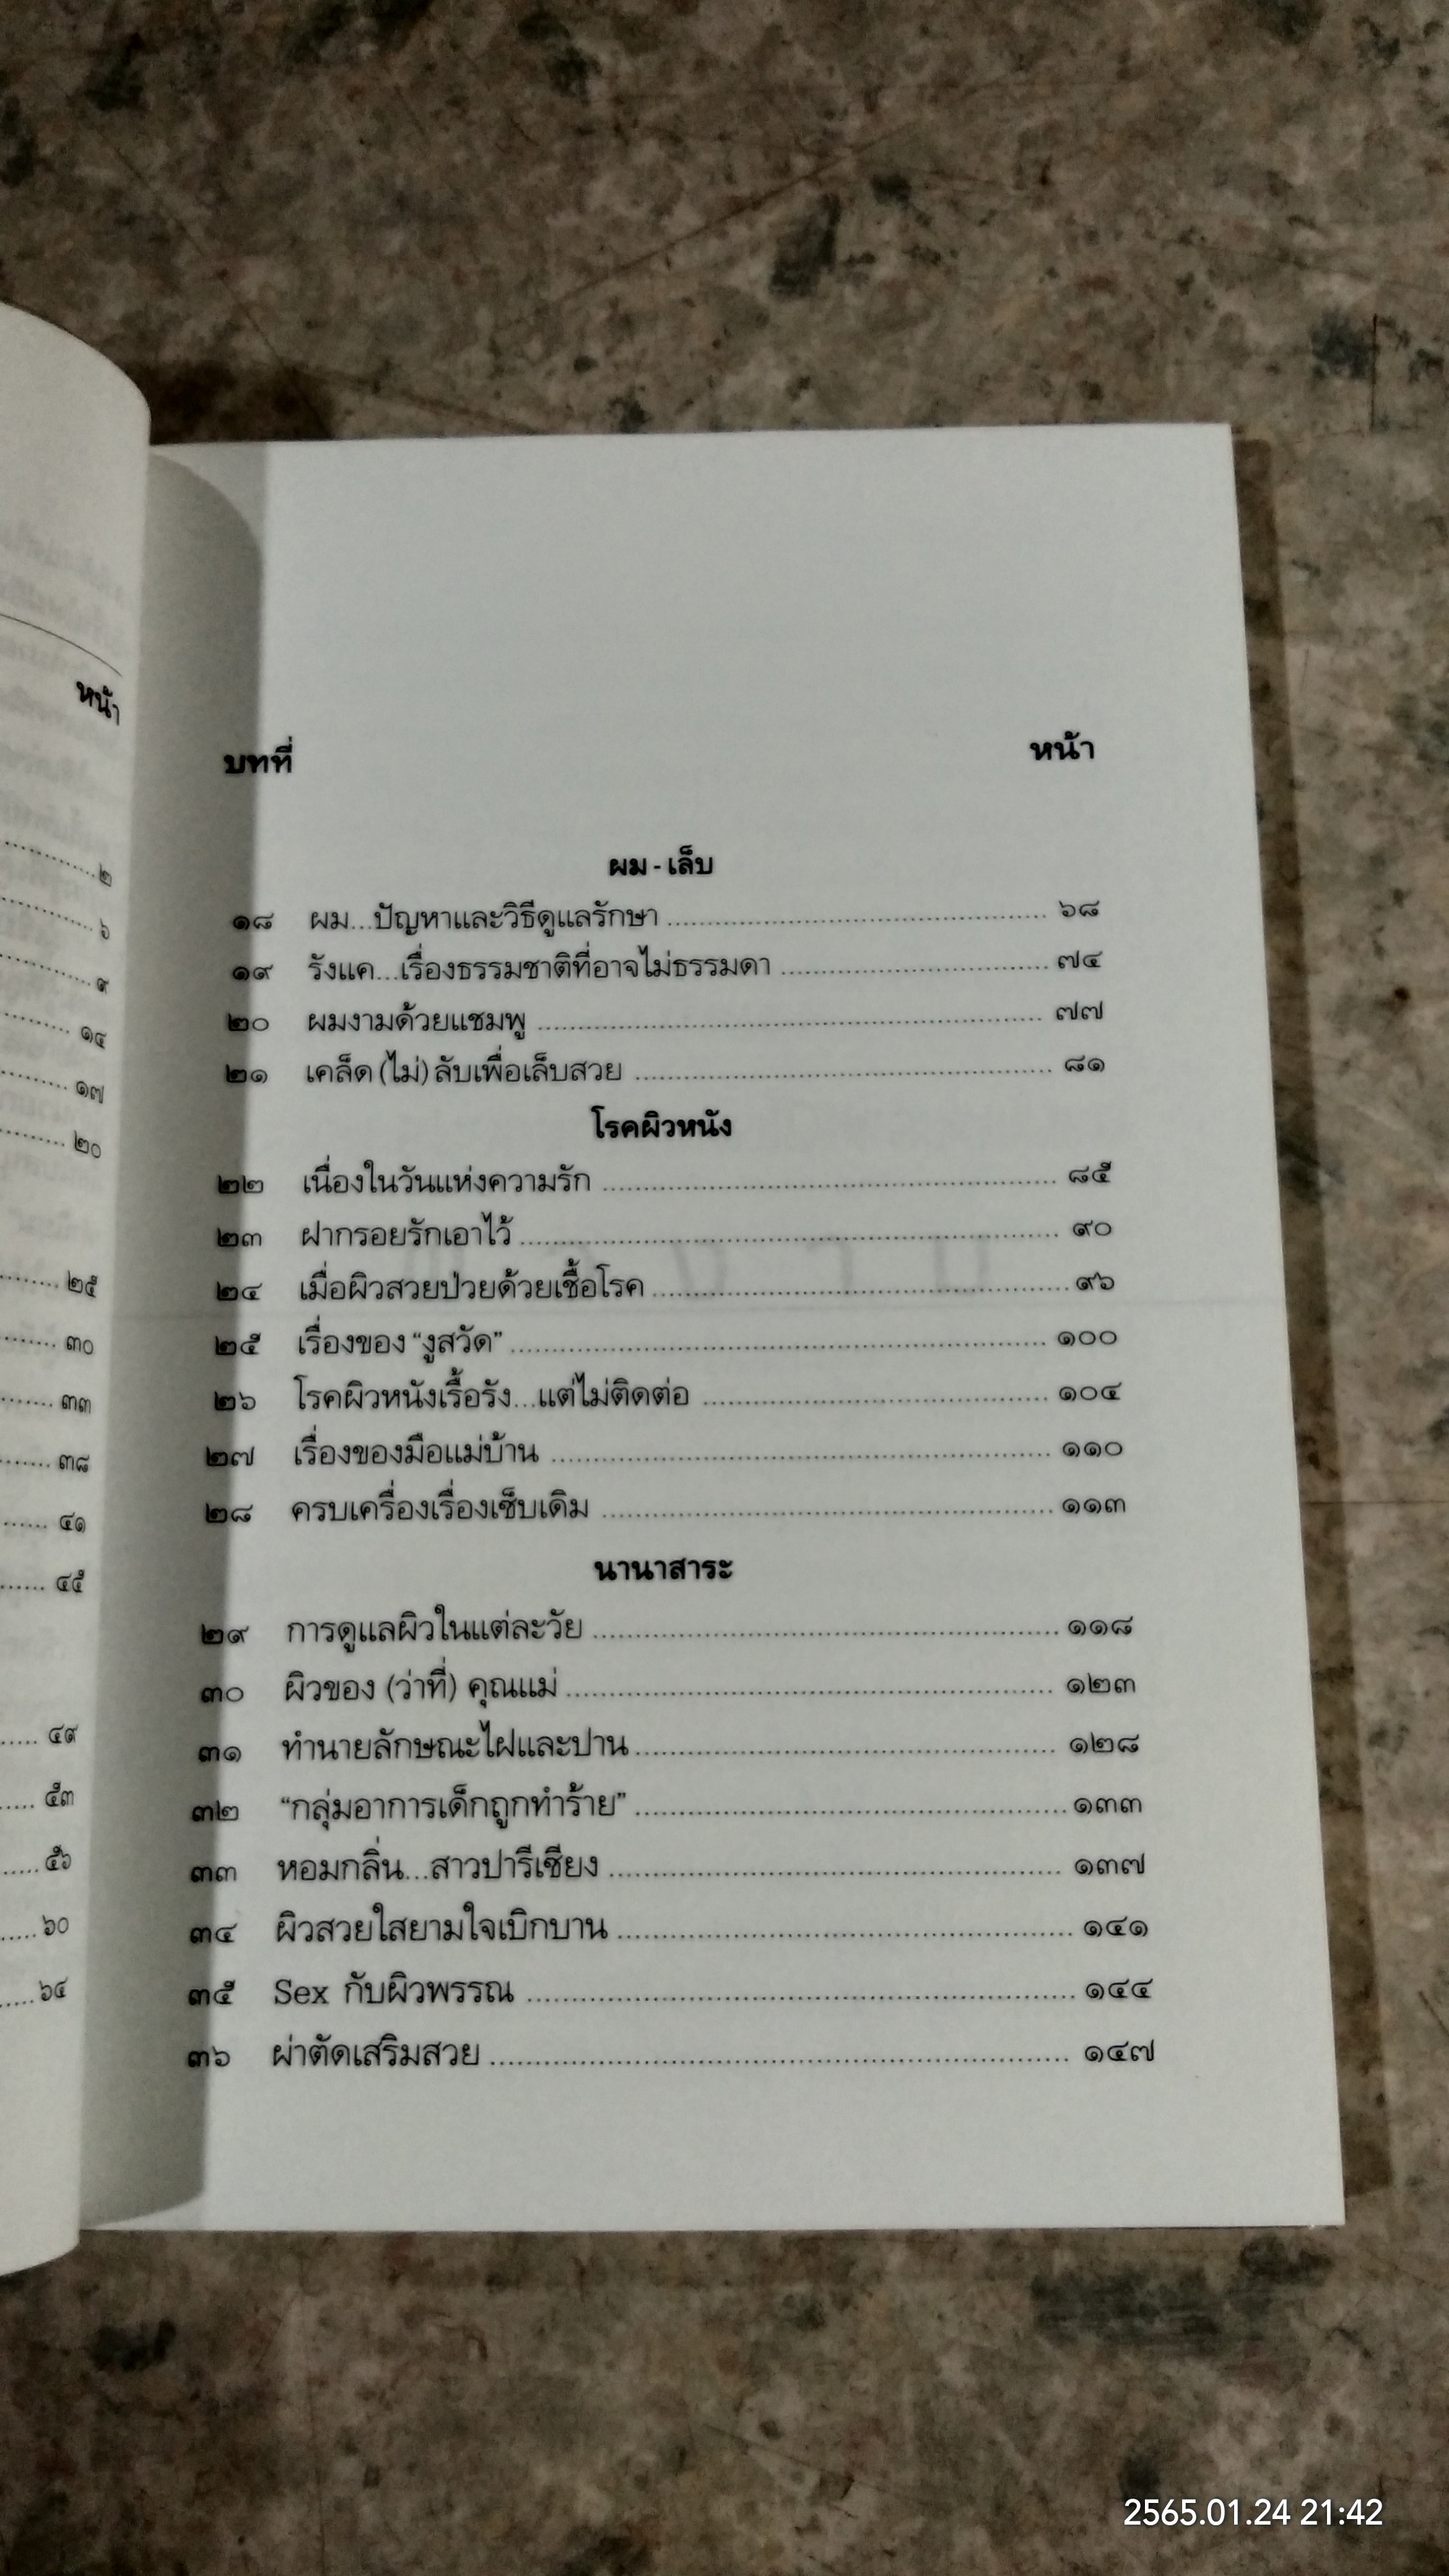 หน้า
๒
๖
๙
๑๔
๑๗
๒๐
๒๕
๓๐
๓๓
๓๘
๔๑
๔๕
๔๙
๕๓
๕๖
๖๐
๖๔
บทที่ หน้า
ผม - เล็บ
๑๘ ผม...ปัญหาและวิธีดูแลรักษา ........ ๖๘
๑๙ รังแค...เรื่องธรรมชาติที่อาจไม่ธรรมดา ........ ๗๔
๒๐ ผมงามด้วยแชมพู ........ ๗๗
๒๑ เคล็ด (ไม่) ลับเพื่อเล็บสวย ........ ๘๑
โรคผิวหนัง
๒๒ เนื่องในวันแห่งความรัก ........ ๘๕
๒๓ ฝากรอยรักเอาไว้ ........ ๙๐
๒๔ เมื่อผิวสวยป่วยด้วยเชื้อโรค ........ ๙๖
๒๕ เรื่องของ “งูสวัด” ........ ๑๐๐
๒๖ โรคผิวหนังเรื้อรัง...แต่ไม่ติดต่อ ........ ๑๐๔
๒๗ เรื่องของมือแม่บ้าน ........ ๑๑๐
๒๘ ครบเครื่องเรื่องเซ็บเดิม ........ ๑๑๓
นานาสาระ
๒๙ การดูแลผิวในแต่ละวัย ........ ๑๑๘
๓๐ ผิวของ (ว่าที่) คุณแม่ ........ ๑๒๓
๓๑ ทำนายลักษณะไฝและปาน ........ ๑๒๘
๓๒ “กลุ่มอาการเด็กถูกทำร้าย” ........ ๑๓๓
๓๓ หอมกลิ่น...สาวปารีเซียง ........ ๑๓๗
๓๔ ผิวสวยใสยามใจเบิกบาน ........ ๑๔๑
๓๕ Sex กับผิวพรรณ ........ ๑๔๔
๓๖ ผ่าตัดเสริมสวย ........ ๑๔๗
2565.01.24 21:42